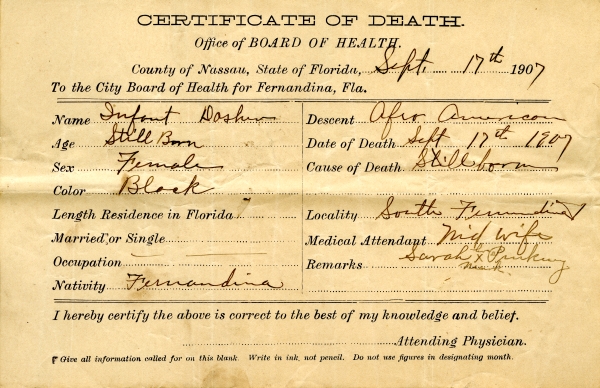 CERTIFICATE OF DEATH.
Office of BOARD OF HEALTH.
County of Nassau, State of Florida, Sept. 17th 1907
To the City Board of Health for Fernandina, Fla.
Name Infant Descent Afro American
Age Still Born Date of Death Sept 17th 1907
Sex Female Cause of Death Stillborn
Color Black
Length Residence in Florida Locality South Fernandina
Married or Single Medical Attendant Mid wife
Occupation Remarks Sarah X
Nativity Fernandina
I hereby certify the above is correct to the best of my knowledge and belief.
Attending Physician.
Give all information called for on this blank. Write in ink, not pencil. Do not use figures in designating month.